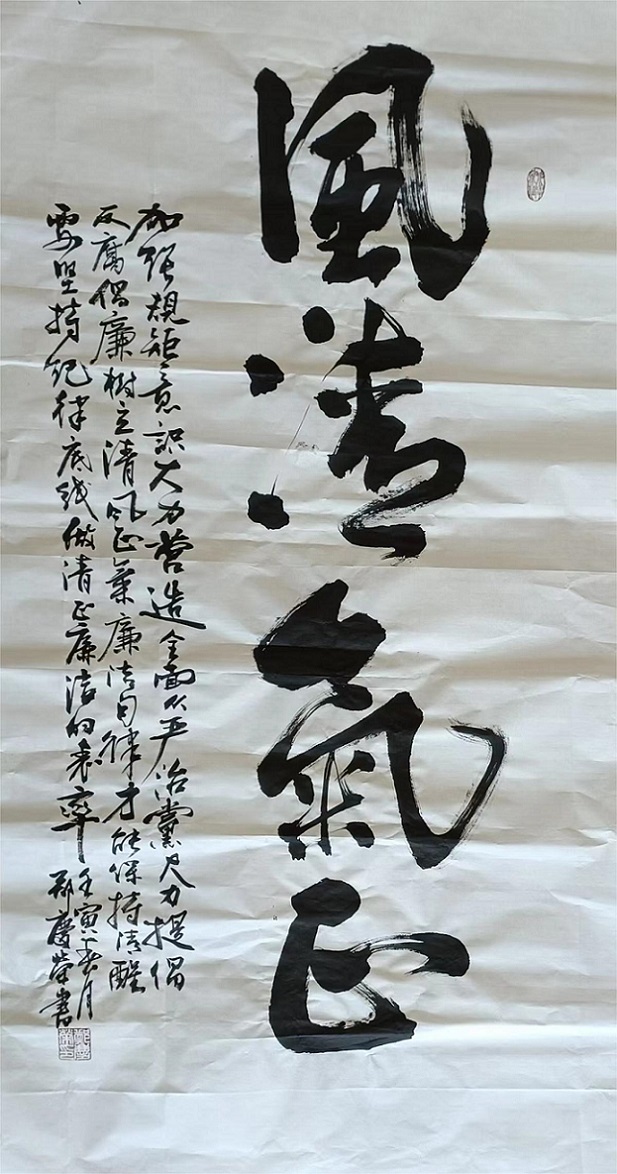 風清氣正
加强規矩意識大力营造全面从严治黨大力提倡
反腐倡廉樹立清风正氣廉洁自律才能保持清醒
要坚持纪律底线做清正廉洁的表率
壬寅年春月
郑慶荣書